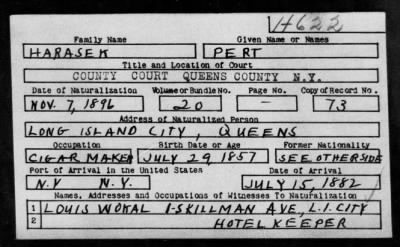 H622
Family Name Given Name or Names
HARASEK PERT
Title and Location of Court
COUNTY COURT QUEENS COUNTY N.Y.
Date of Naturalization Volume or Bundle No. Page No. Copy of Record No.
NOV. 7, 1896 20 - 73
Address of Naturalized Person
LONG ISLAND CITY, QUEENS
Occupation Birth Date or Age Former Nationality
CIGAR MAKER JULY 29, 1857 SEE OTHERSIDE
Port of Arrival in the United States Date of Arrival
N.Y N.Y. JULY 15, 1882
Names, Addresses and Occupations of Witnesses To Naturalization
1 LOUIS WOKAL 1-SKILLMAN AVE, L.I. CITY
2 HOTEL KEEPER